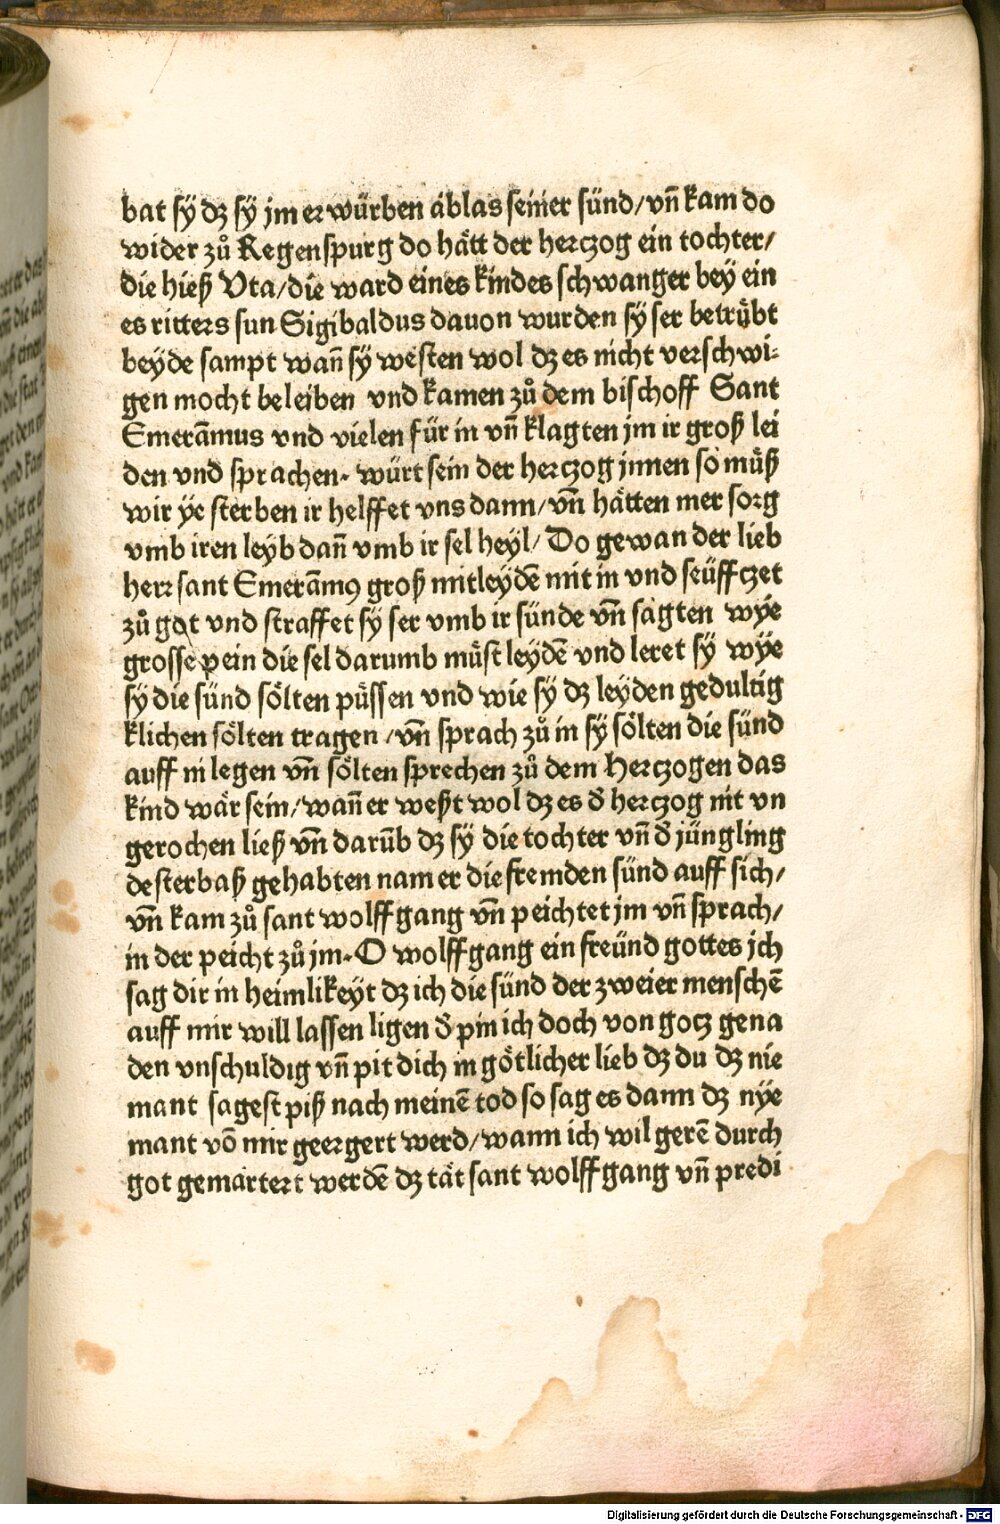 bat sÿ dz sÿ jm erwürben äblas seiner sünd/vn̄ kam do
wider zů Regenspurg do hätt der herczog ein tochter/
die hieß Vta/die ward eines kindes schwanger beÿ ein
es ritters sun Sigibaldus dauon wurden sÿ ser betrůbt
beÿde sampt wan̄ sÿ westen wol dz es nicht verschwi⸗
gen mocht beleiben vnd kamen zů dem bischoff Sant
Emeram̄us vnd vielen für in vn̄ klagten jm ir groß lei
den vnd sprachen. würt sein der herczog jnnen so můß
wir ÿe sterben ir helffet vns dann/vn̄ hätten mer sorg
vmb iren leÿb dan̄ vmb ir sel heÿl/Do gewan der lieb
herr sant Emeram̄9 groß mitleÿdē mit in vnd seüffczet
zů got vnd straffet sÿ ser vmb ir sünde vn̄ sagten wÿe
grosse pein die sel darumb můst leÿdē vnd leret sÿ wÿe
sÿ die sünd sölten půssen vnd wie sÿ dz leÿden gedultig
klichen sölten tragen/vn̄ sprach zů in sÿ sölten die sünd
auff in legen vn̄ sölten sprechen zů dem herczogen das
kind wär sein/wan̄ er weßt wol dz es d̄ herczog nit vn
gerochen ließ vn̄ darūb dz sÿ die tochter vn̄ d̄ jüngling
desterbaß gehabten nam er die fremden sünd auff sich/
vn̄ kam zů sant wolffgang vn̄ peichtet jm vn̄ sprach/
in der peicht zů jm. O wolffgang ein freünd gottes jch
sag dir in heimlikeÿt dz ich die sünd der zweier menschē
auff mir will lassen ligen d̄ pin ich doch von gocz gena
den vnschuldig vn̄ pit dich in götlicher lieb dz du dz nie
mant sagest piß nach meinē tod so sag es dann dz nÿe
mant vō mir geergert werd/wann ich wil gerē durch
got gemartert werdē dz tät sant wolffgang vn̄ predi
Digitalisierung gefördert durch die Deutsche Forschungsgemeinschaft - DFG